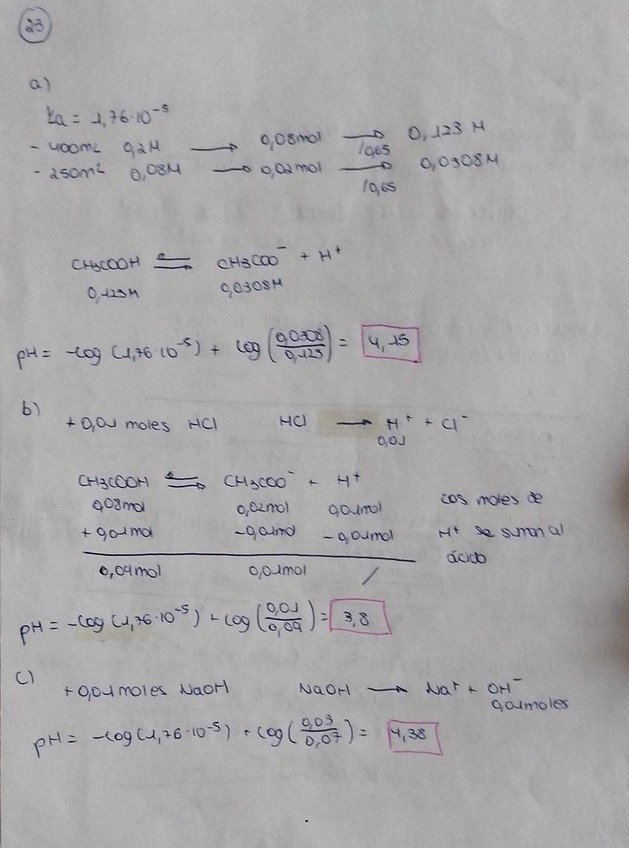 23
a)
Ka = 1,76·10⁻⁵
- 400mL 0,2M → 0,08mol → /0,65 0,123 M
- 250mL 0,08M → 0,02mol → /0,65 0,0308M
CH3COOH ⇌ CH3COO⁻ + H⁺
0,123M 0,0308M
pH = -log (1,76·10⁻⁵) + log (0,0308/0,123) = 4,15
b)
+0,01 moles HCl HCl → H⁺ + Cl⁻
0,01
CH3COOH ⇌ CH3COO⁻ + H⁺
0,08mol 0,02mol 0,01mol Los moles de
+0,01mol -0,01mol -0,01mol H⁺ se suman al
ácido
0,09mol 0,01mol /
pH = -log (1,76·10⁻⁵) + log (0,01/0,09) = 3,8
c)
+0,01moles NaOH NaOH → Na⁺ + OH⁻
0,01moles
pH = -log (1,76·10⁻⁵) + log (0,03/0,07) = 4,38